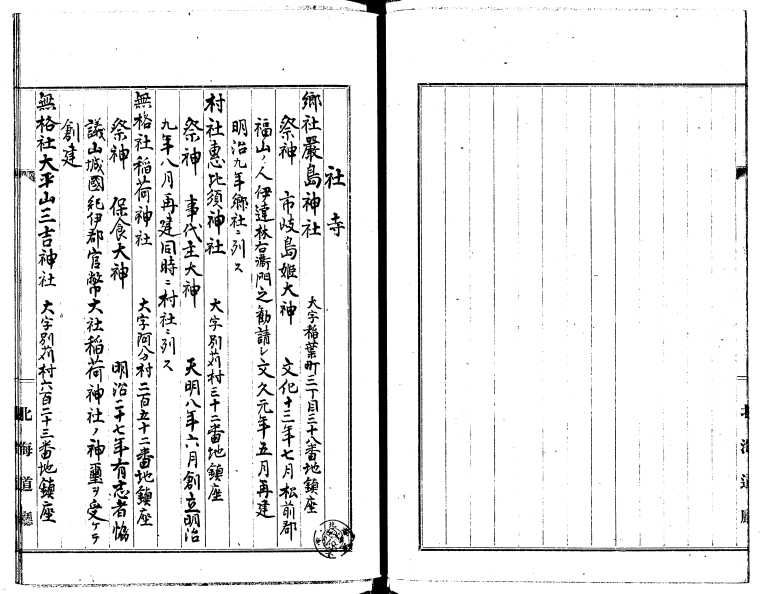 社寺
郷社嚴島神社 大字稲葉町三丁目三十八番地鎮座
祭神 市岐島姫大神 文化十三年七月松前郡
福山ノ人伊達林右衛門之勧請シ文久元年五月再建
明治九年郷社ニ列ス
村社惠比須神社 大字別苅村三十二番地鎮座
祭神 事代主大神 天明八年六月創立明治
九年八月再建同時ニ村社ニ列ス
無格社稲荷神社 大字阿分村二百五十二番地鎮座
祭神 保食大神 明治二十七年有志者協
議山城國紀伊郡官幣大社稲荷神社ノ神璽ヲ受ケテ
創建
無格社大平山三吉神社 大字別苅村六百二十三番地鎮座
北海道廳